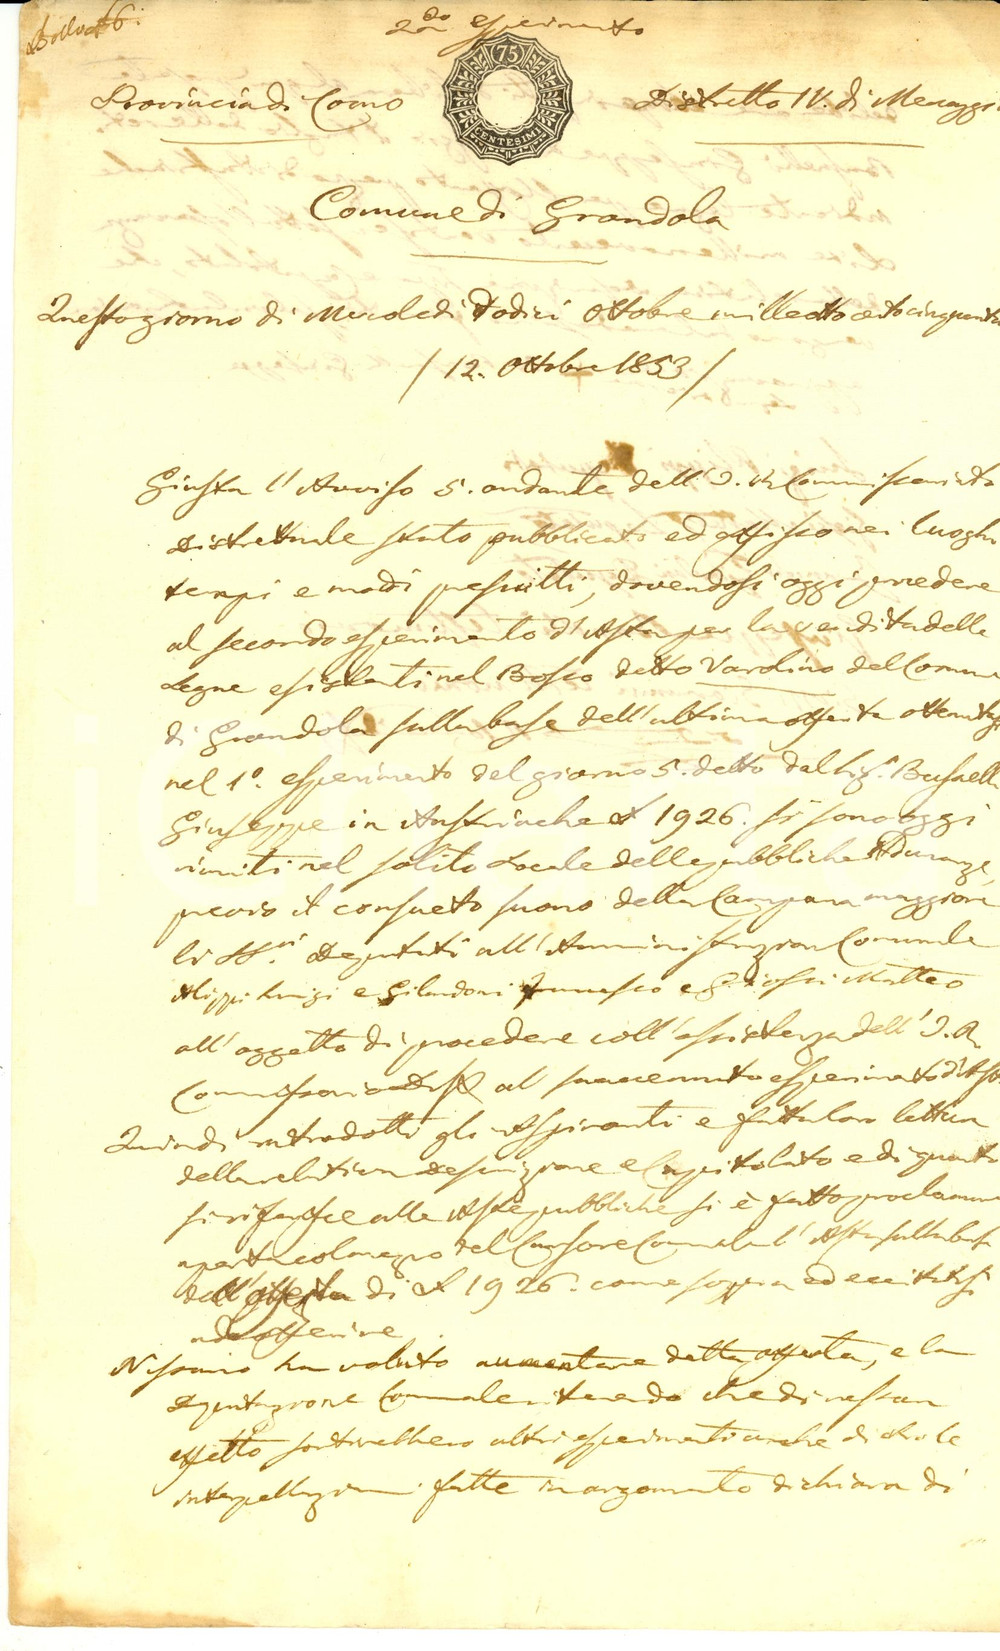 2do esperimento
75
CENTESIMI
Provincia di Como
Distretto IV. di Menaggio
Comune di Grandola
Questo giorno di Mercoledi dodici Ottobre mille otto cento cinquanta
/ 12. Ottobre 1853 /
Giusta l'Avviso 5. andante dell'I. R. Commissariato
Distrettuale stato pubblicato ed affisso nei luoghi
tempi e modi prescritti, dovendosi oggi procedere
al secondo esperimento d'Asta per la vendita delle
Legne esistenti nel Bosco detto Vardino del Comune
di Grandola sulla base dell'ultima offerta ottenuta
nel 1°. esperimento del giorno 5. detto dal Sigr. Busnelli
Giuseppe in Austriache £ 1926. si sono oggi
riuniti nel solito Locale delle pubbliche Adunanze,
previo il consueto suono della Campana maggiore
li SS.ri Deputati all'Amministrazione Comunale
Luigi e Gilardoni Francesco e Matteo
all'oggetto di procedere coll'assistenza dell'I. R.
Commissario Distle al succennato esperimento d'Asta
Quindi introdotti gli Aspiranti e fatta loro lettura
della relativa descrizione e Capitolato e di quanto
si riferisce alle Aste pubbliche si è fatto proclamare
aperta col mezzo del Cursore Comunale l'Asta sulla base
dell'offerta di £ 1926. come sopra ed eccitatisi
ad offerire
Nissuno ha voluto aumentare detta offerta, e la
Deputazione Comunale ritenendo che di nessun
effetto sortirebbero altri esperimenti anche dietro le
interpellazioni fatte in argomento dichiara di